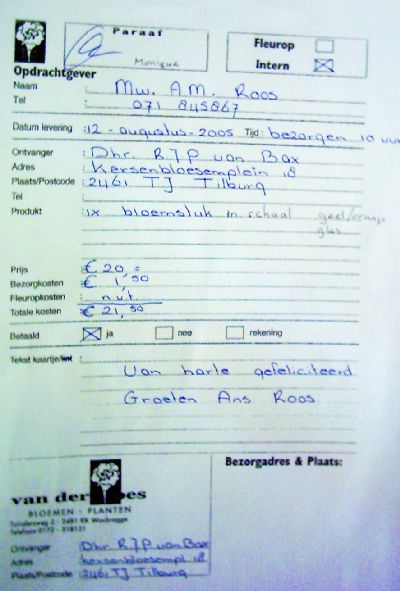 Paraaf
Monique
Fleurop
Intern
Opdrachtgever
Naam : Mw. A.M. Roos
Tel : 071 845867
Datum levering : 12 - augustus - 2005 Tijd : bezorgen 10 uur
Ontvanger : Dhr. RJP van Bax
Adres : Kersenbloesemplein 18
Plaats/Postcode : 2461 TJ Tilburg
Tel :
Produkt : 1x bloemstuk in schaal geel/oranje
glas
Prijs : € 20,=
Bezorgkosten : € 1,50
Fleuropkosten : n.v.t.
Totale kosten : € 21,50
Betaald : ja nee rekening
Tekst kaartje/lint :
Van harte gefeliciteerd
Groeten Ans Roos
Bezorgadres & Plaats:
van der oes
BLOEMEN - PLANTEN
Tuinderweg 2 - 2481 KK Woubrugge
Telefoon 0172 - 518121
Ontvanger : Dhr RJP van Bax
Adres : Kersenbloesempl 18
Plaats/Postcode : 2461 TJ Tilburg